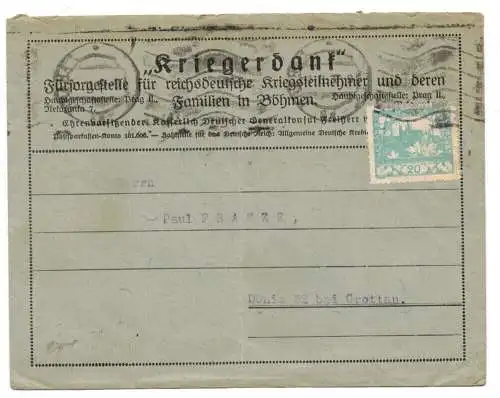 „Kriegerdank“
Fürsorgestelle für reichsdeutsche Kriegsteilnehmer und deren
Hauptgeschäftsstelle: Prag II. Familien in Böhmen. Hauptgeschäftsstelle: Prag II.
Ehrenvorsitzender: Kaiserlich Deutscher Generalkonsul Freiherr v
Postsparkassen-Konto 161.606.— Zahlstelle für das Deutsche Reich: Allgemeine Deutsche Kredi
20
rrn
Paul
bei Grottau.